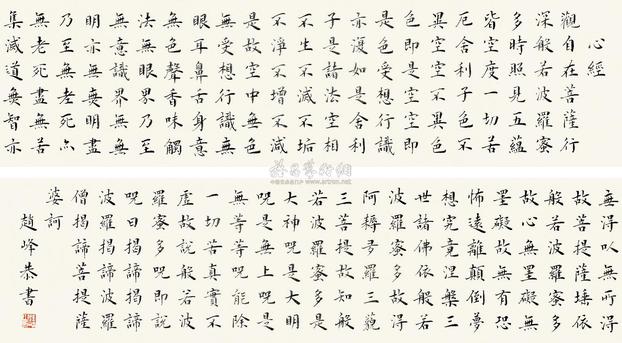 心經
觀自在菩薩行
深般若波羅蜜
多時照見五蘊
皆空度一切苦
厄舍利子色不
異空空不異色
色即是空空即
是色受想行識
亦復如是舍利
子是諸法空相
不生不滅不垢
不淨不增不減
是故空中無色
無受想行識無
眼耳鼻舌身意
無色聲香味觸
法無眼界乃至
無意識界無無
明亦無無明盡
乃至無老死亦
無老死盡無苦
集滅道無智亦
無得以無所得
故菩提薩埵依
般若波羅蜜多
故心無罣礙無
罣礙故無有恐
怖遠離顛倒夢
想究竟涅槃三
世諸佛依般若
波羅蜜多故得
阿耨多羅三藐
三菩提故知般
若波羅蜜多是
大神呪是大明
呪是無上呪是
無等等呪能除
一切苦真實不
虛故說般若波
羅蜜多呪即說
呪曰揭諦揭諦
波羅揭諦波羅
僧揭諦菩提薩
婆訶
趙峰恭書